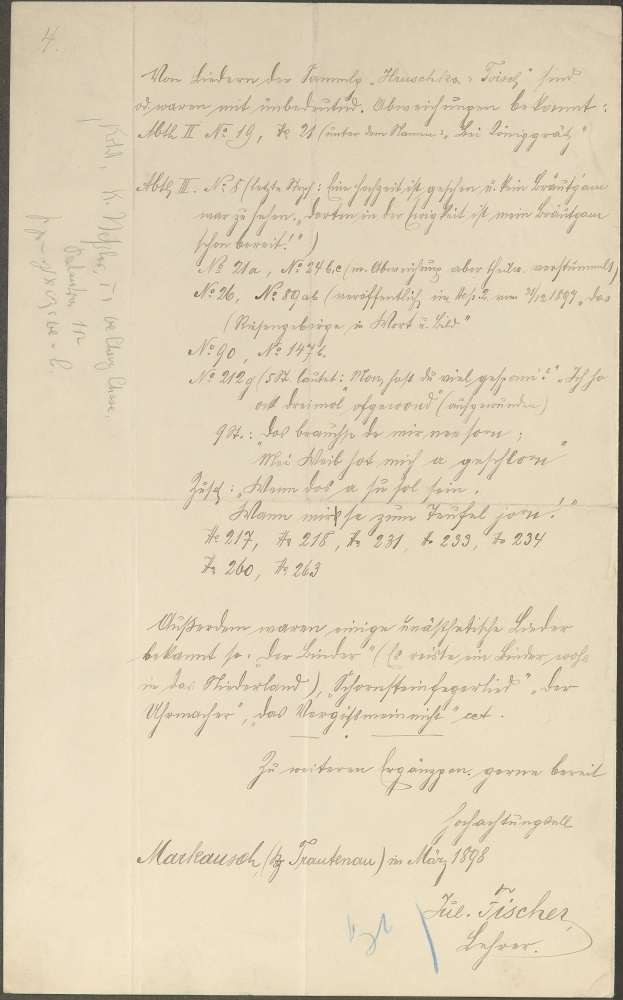 4.
Von Liedern der Sammlg „Hruschka : Toisch" sind
od. waren mit unbedeutud. Abweichungen bekannt:
Abth II No 19, No 21 (unter dem Namen: „bei Königgrätz"
Abth III. No 8 (letzte Stroph: Eine Hochzeit ist geschen, u. kein Bräutgam
war zu sehen. „Dorten in der Ewigkeit ist mein Bräutgam
schon bereit!")
No 21a, No 24 b,c (m. Abweichung aber theilw. verstümmelt)
No 26, No 89 ab (veröffentlich im 1897 „Das
(Riesengebirge in Wort u. Bild"
No 90, No 147 b.
No 212 g (5 St. lautet: Mon, host du viel gesponn?" „Ich ho
ock dreimol ofgewond" (aufgewunden)
9 St.: „Dos brauchst de mir nee son;
Mei Weib hot mich a geschlon"
Zusch: „Wenn dos a su sol sein,
Wann mir se zum Teufel jon!"
No 217, No 218, No 231, No 233, No 234
No 260, No 263
Außerdem waren einige unästhetische Lieder
bekannt so: „Der Binder" (Es reiste ein Binder wohl
in das Niederland), „Schornsteinfegerlied" „Der
Uhrmacher", „das Vergißmeinnicht" ect.
Zu weiteren Ergänzgen. gerne bereit
Hochachtungsvoll
Markausch, (bz Trautenau) im März 1898
Jul. Fischer,
Lehrer.